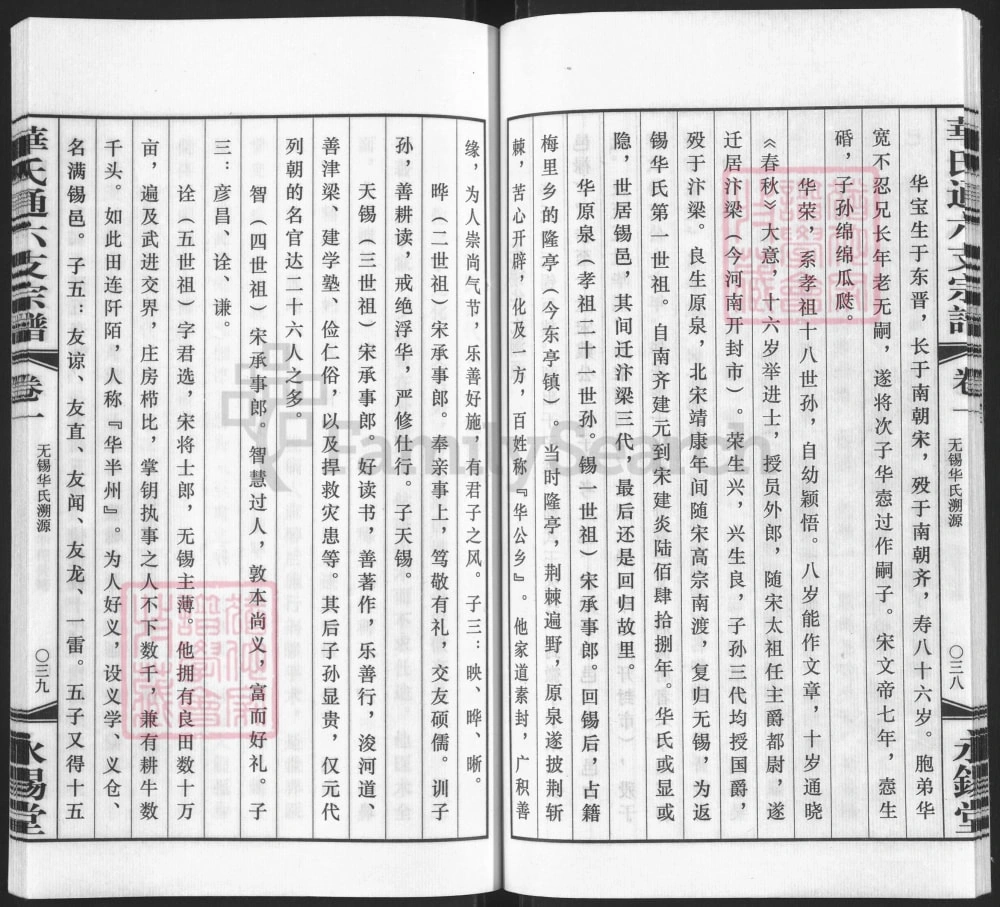 華氏通六支宗譜
卷一
无锡华氏溯源
〇三八
永錫堂
华宝生于东晋，长于南朝宋，殁于南朝齐，寿八十六岁。胞弟华
宽不忍兄长年老无嗣，遂将次子华悫过作嗣子。宋文帝七年，悫生
㬂，子孙绵绵瓜瓞。
华荣，系孝祖十八世孙，自幼颖悟。八岁能作文章，十岁通晓
《春秋》大意，十六岁举进士，授员外郎，随宋太祖任主爵都尉，遂
迁居汴梁（今河南开封市）。荣生兴，兴生良，子孙三代均授国爵，
殁于汴梁。良生原泉，北宋靖康年间随宋高宗南渡，复归无锡，为返
锡华氏第一世祖。自南齐建元到宋建炎陆佰肆拾捌年。华氏或显或
隐，世居锡邑，其间迁汴梁三代，最后还是回归故里。
华原泉（孝祖二十一世孙。锡一世祖）宋承事郎。回锡后，占籍
梅里乡的隆亭（今东亭镇）。当时隆亭，荆棘遍野，原泉遂披荆斩
棘，苦心开辟，化及一方，百姓称『华公乡』。他家道素封，广积善
缘，为人崇尚气节，乐善好施，有君子之风。子三：映、晔、晰。
晔（二世祖）宋承事郎。奉亲事上，笃敬有礼，交友硕儒。训子
孙，善耕读，戒绝浮华，严修仕行。子天锡。
天锡（三世祖）宋承事郎。好读书，善著作，乐善行，浚河道、
善津梁、建学塾、俭仁俗，以及捍救灾患等。其后子孙显贵，仅元代
列朝的名官达二十六人之多。
智（四世祖）宋承事郎。智慧过人，敦本尚义，富而好礼。子
三：彦昌、诠、谦。
诠（五世祖）字君选，宋将士郎，无锡主薄。他拥有良田数十万
亩，遍及武进交界，庄房栉比，掌钥执事之人不下数千，兼有耕牛数
千头。如此田连阡陌，人称『华半州』。为人好义，设义学、义仓、
名满锡邑。子五：友谅、友直、友闻、友龙、一雷。五子又得十五
華氏通六支宗譜
卷一
无锡华氏溯源
〇三九
永錫堂
FamilySearch